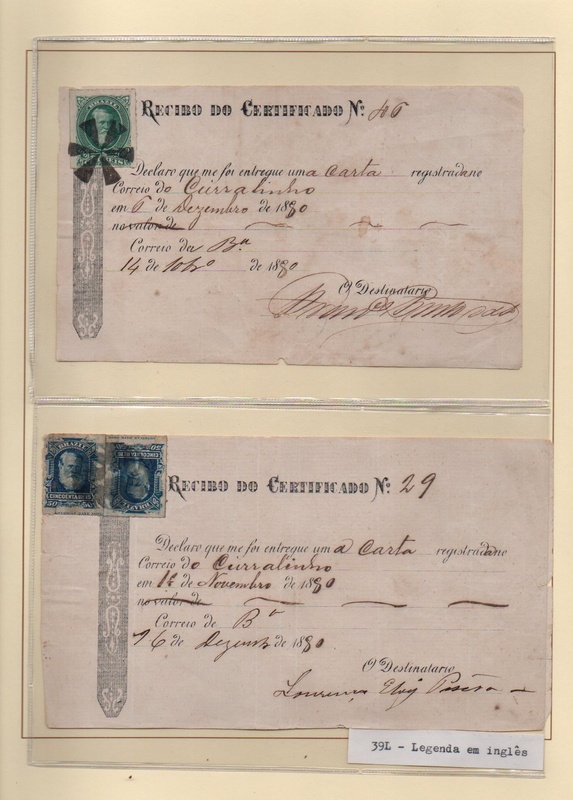 BRAZIL
RECIBO DO CERTIFICADO Nº 46
Declaro que me foi entregue uma carta registrada no
Correio do Curralinho
em 6 de Dezembro de 1880
no valor de
Correio da Bª
14 de de 1880
O Destinatario
BRAZIL
CINCOENTA REIS
50 50
CINCOENTA REIS
50
RECIBO DO CERTIFICADO Nº 29
Declaro que me foi entregue uma carta registrada no
Correio do Curralinho
em de Novembro de 1880
no valor de
Correio de Bª
16 de Dezembro de 1880
O Destinatario
Lourenço Eloy
39L - Legenda em inglês